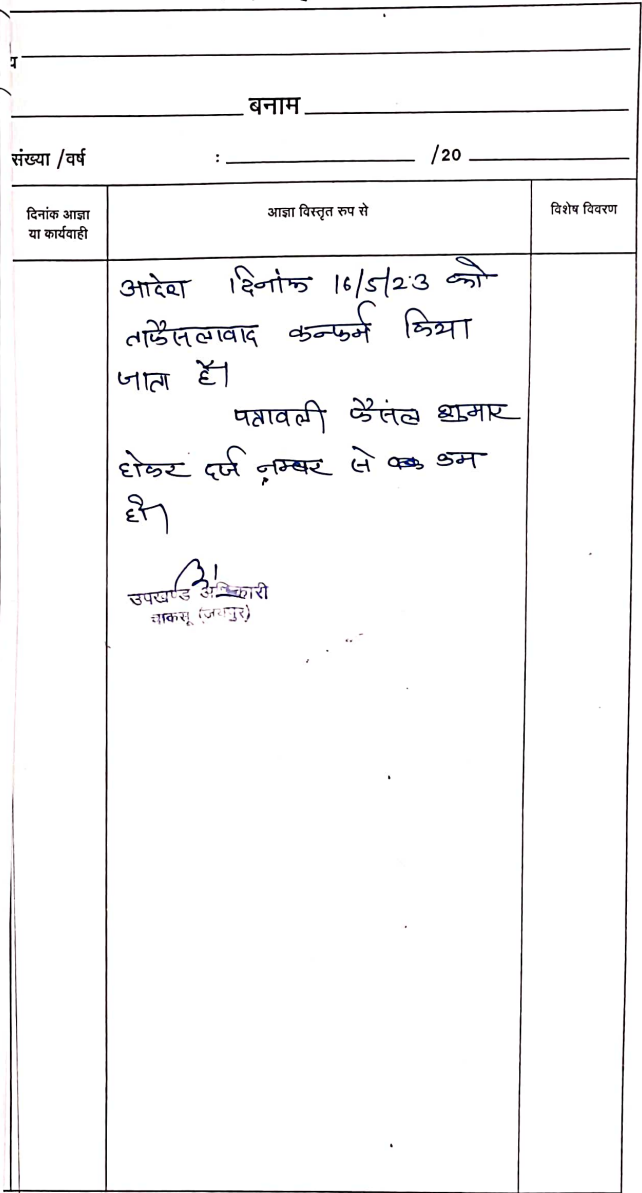 बनाम
संख्या /वर्ष : /20
दिनांक आज्ञा
या कार्यवाही
आज्ञा विस्तृत रुप से
विशेष विवरण
आदेश दिनांक 16/5/23 को
ताफैसलावाद कन्फर्म किया
जाता है।
पत्रावली फैसल शुमार
होकर दर्ज नम्बर से कम
हो।
उपखण्ड अधिकारी
चाकसू (जयपुर)